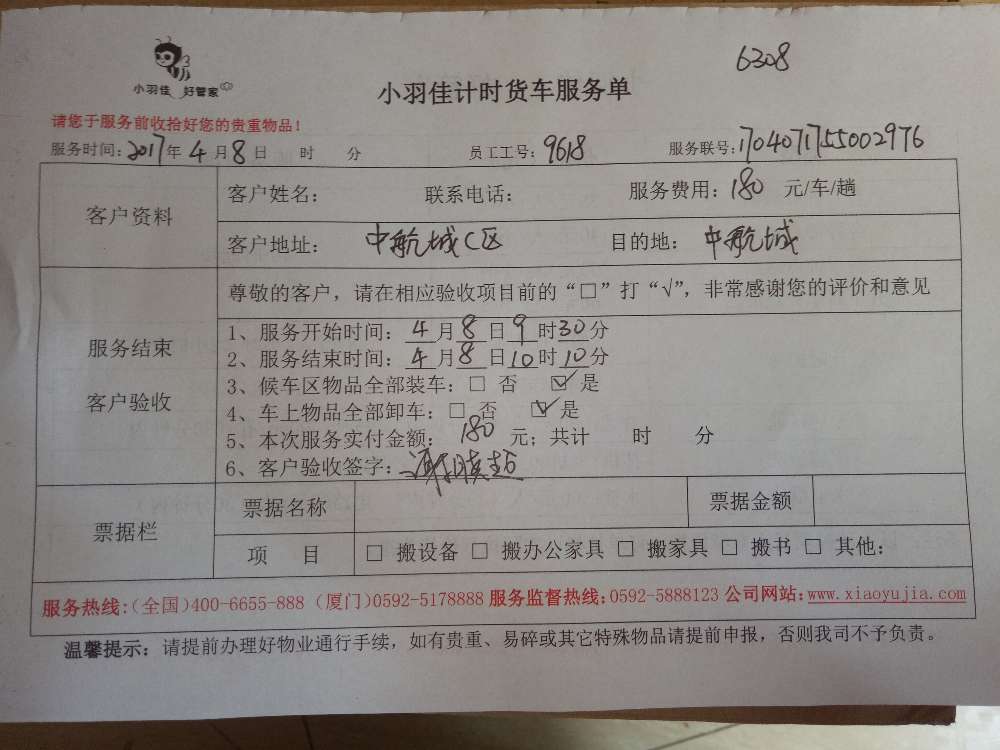 6308
小羽佳 好管家
小羽佳计时货车服务单
请您于服务前收拾好您的贵重物品!
服务时间:2017年4月8日 时 分 员工工号:9618 服务联号:1704071755002976
客户资料 客户姓名: 联系电话: 服务费用:180 元/车/趟
客户地址: 中航城C区 目的地: 中航城
尊敬的客户，请在相应验收项目前的“□”打“√”，非常感谢您的评价和意见
服务结束
客户验收
1、服务开始时间:4月8日9时30分
2、服务结束时间:4月8日10时10分
3、候车区物品全部装车:□ 否 ☑ 是
4、车上物品全部卸车:□ 否 ☑ 是
5、本次服务实付金额: 180 元；共计 时 分
6、客户验收签字:
票据栏 票据名称 票据金额
项 目 □ 搬设备 □ 搬办公家具 □ 搬家具 □ 搬书 □ 其他:
服务热线:(全国)400-6655-888 (厦门)0592-5178888 服务监督热线:0592-5888123 公司网站:www.xiaoyujia.com
温馨提示: 请提前办理好物业通行手续，如有贵重、易碎或其它特殊物品请提前申报，否则我司不予负责。